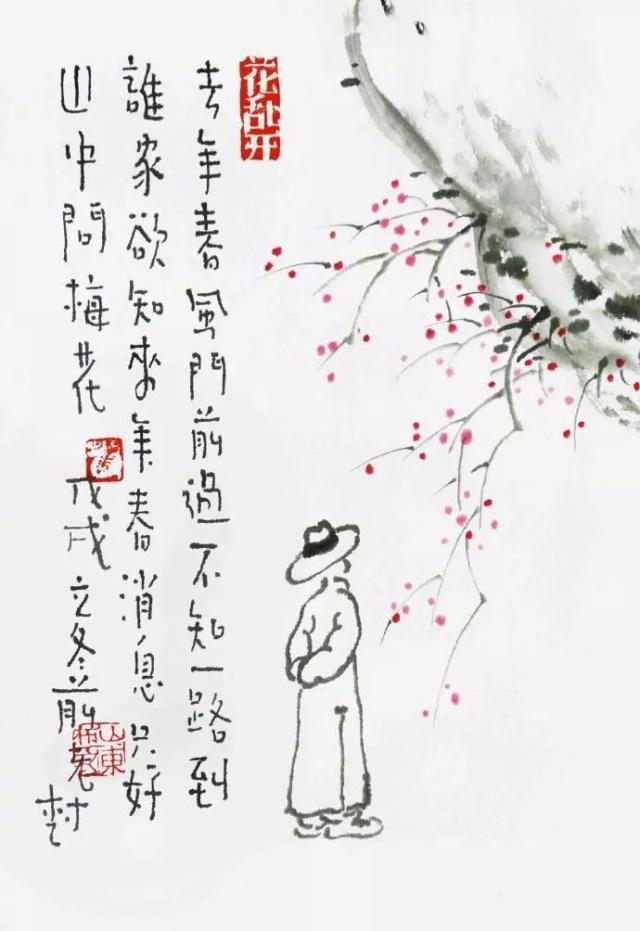 花乱开
去年春風門前過不知一路到
誰家欲知來年春消息只好
山中問梅花
戊戌立冬前老